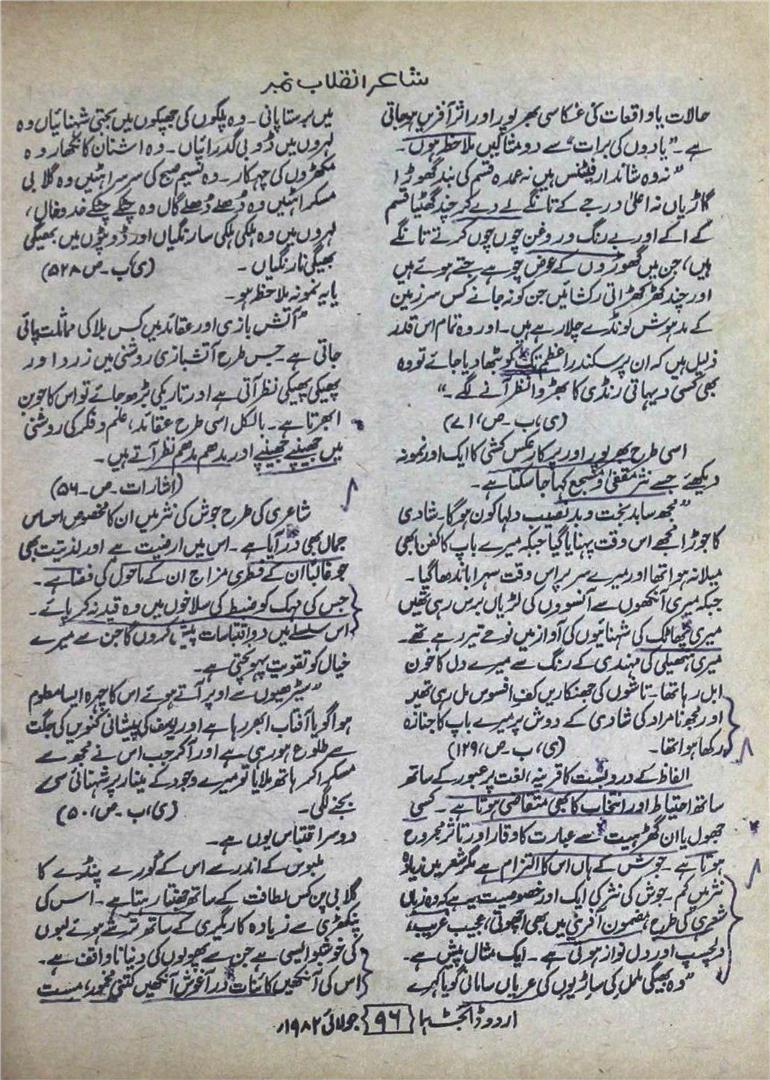 شاعر انقلاب نمبر
حالات یا واقعات کی عکاسی بھرپور اور اثر آفریں ہوجاتی
ہے۔ "یادوں کی برات" سے دو مثالیں ملاحظہ ہوں۔
"نہ وہ شاندار فیٹنس ہیں نہ عمدہ قسم کی بند گھوڑا
گاڑیاں نہ اعلیٰ درجے کے تانگے لے دے کر چند گھٹیا قسم
کے اکے اور بے رنگ و روغن چوں چوں کرتے تانگے
ہیں، جن میں گھوڑوں کے عوض چوہے جتے ہوئے ہیں
اور چند کھڑکھڑاتی رکشائیں جن کو نہ جانے کس سرزمین
کے مدہوش لونڈے چلا رہے ہیں۔ اور وہ تمام اس قدر
ذلیل ہیں کہ ان پر سکندر اعظم تک کو بٹھا دیا جائے تو وہ
بھی کسی دیہاتی رنڈی کا بھڑوا نظر آنے لگے۔"
(ی، ب۔ ص، ۷۱)
اسی طرح بھرپور اور پرکار عکس کشی کا ایک اور نمونہ
دیکھئے جسے نثر مقفیٰ و مسجع کہا جا سکتا ہے۔
"مجھ سا بد بخت و بد نصیب دلہا کون ہوگا۔ شادی
کا جوڑا مجھے اس وقت پہنایا گیا جبکہ میرے باپ کا کفن بھی
میلا نہ ہوا تھا اور میرے سر پر اس وقت سہرا باندھا گیا۔
جبکہ میری آنکھوں سے آنسووں کی لڑیاں برس رہی تھیں
میری پھاٹک کی شہنائیوں کی آواز میں نوحے تیر رہے تھے۔
میری ہتھیلی کی مہندی کے رنگ سے میرے دل کا خون
ابل رہا تھا۔ تاشوں کی جھنکاریں کف افسوس مل رہی تھیں
اور مجھ نامراد کی شادی کے دوش پر میرے باپ کا جنازہ
رکھا ہوا تھا۔ (ی، ب، ص، ۱۲۹)
الفاظ کے در و بست کا قرینہ، لغت پر عبور کے ساتھ
ساتھ احتیاط اور انتخاب کا بھی متقاضی ہوتا ہے۔ کسی
جھول یا ان گھڑ پن سے عبارت کا وقار اور تاثر مجروح
ہوتا ہے۔ جوش کے ہاں اس کا التزام ہے مگر شعر میں زیادہ
نثر میں کم۔ جوش کی نثر کی ایک اور خصوصیت یہ ہے کہ وہ زبان
شعری کی طرح مضمون آفرینی میں بھی اچھوتی، عجیب غریب،
دلچسپ اور دل نواز ہوتی ہے۔ ایک مثال پیش ہے۔
"وہ بھیگی ململ کی ساڑیوں کی عریاں سامانی گویا کہرے
میں برستا پانی۔ وہ پلکوں کی جھپکوں میں بجتی شہنائیاں وہ
لہروں میں ڈوبی گدرائیاں۔ وہ اشنان کا نکھار وہ
مکھڑوں کی چہکار۔ وہ نسیم صبح کی سرسراہٹیں وہ گلابی
مسکراہٹیں وہ دھلے دھلے گال وہ چمکے چمکے خد و خال،
لہروں میں وہ ہلکی ہلکی سارنگیاں اور ڈوپٹوں میں بھیگی
بھیگی نارنگیاں۔ (ی، ب۔ ص ۵۲۸)
یا یہ نمونہ ملاحظہ ہو۔
"آتش بازی اور عقائد میں کس بلا کی مماثلت پائی
جاتی ہے۔ جس طرح آتشبازی روشنی میں زرد اور
پھیکی پھیکی نظر آتی ہے اور تاریکی بڑھ جائے تو اس کا جوبن
ابھرتا ہے۔ بالکل اسی طرح عقائد، علم و فکر کی روشنی
میں جھینپے جھینپے اور مدھم مدھم نظر آتے ہیں۔
(اشارات۔ ص۔ ۵۶)
شاعری کی طرح جوش کی نثر میں ان کا مخصوص احساس
جمال بھی در آیا ہے۔ اس میں ارضیت ہے اور لذتیت بھی
جو غالباً ان کے فطری مزاج ان کے ماحول کی فضا ہے۔
جس کی مہک کو ضبط کی سلاخوں میں وہ قید نہ کر پائے۔
اس سلسلے میں دو اقتباسات پیش کروں گا جن سے میرے
خیال کو تقویت پہونچتی ہے۔
"سیڑھیوں سے اوپر آتے ہوئے اس کا چہرہ ایسا معلوم
ہوا گویا آفتاب ابھر رہا ہے اور یوسف کی پیشانی کنویں کی جگت
سے طلوع ہو رہی ہے اور آکر جب اس نے مجھ سے
مسکرا کر ہاتھ ملایا تو میرے وجود کے مینار پر شہنائی سی
بجنے لگی۔ (ی، ب۔ ص، ۵۰)
دوسرا اقتباس یوں ہے۔
ملبوس کے اندر سے اس کے گورے پنڈے کا
گلابی پن کس لطافت کے ساتھ چھنتا رہتا ہے۔ اس کی
پنکھڑی سے زیادہ کاریگری کے ساتھ ترشے ہوئے لبوں
کی خوشبو ایسی ہے جن سے پھولوں کی دنیا ناواقف ہے۔
اس کی آنکھیں کائنات در آغوش آنکھیں کتنی مخمور، مست
اردو ڈائجسٹ ہما ۹۶ جولائی ۱۹۸۲ء